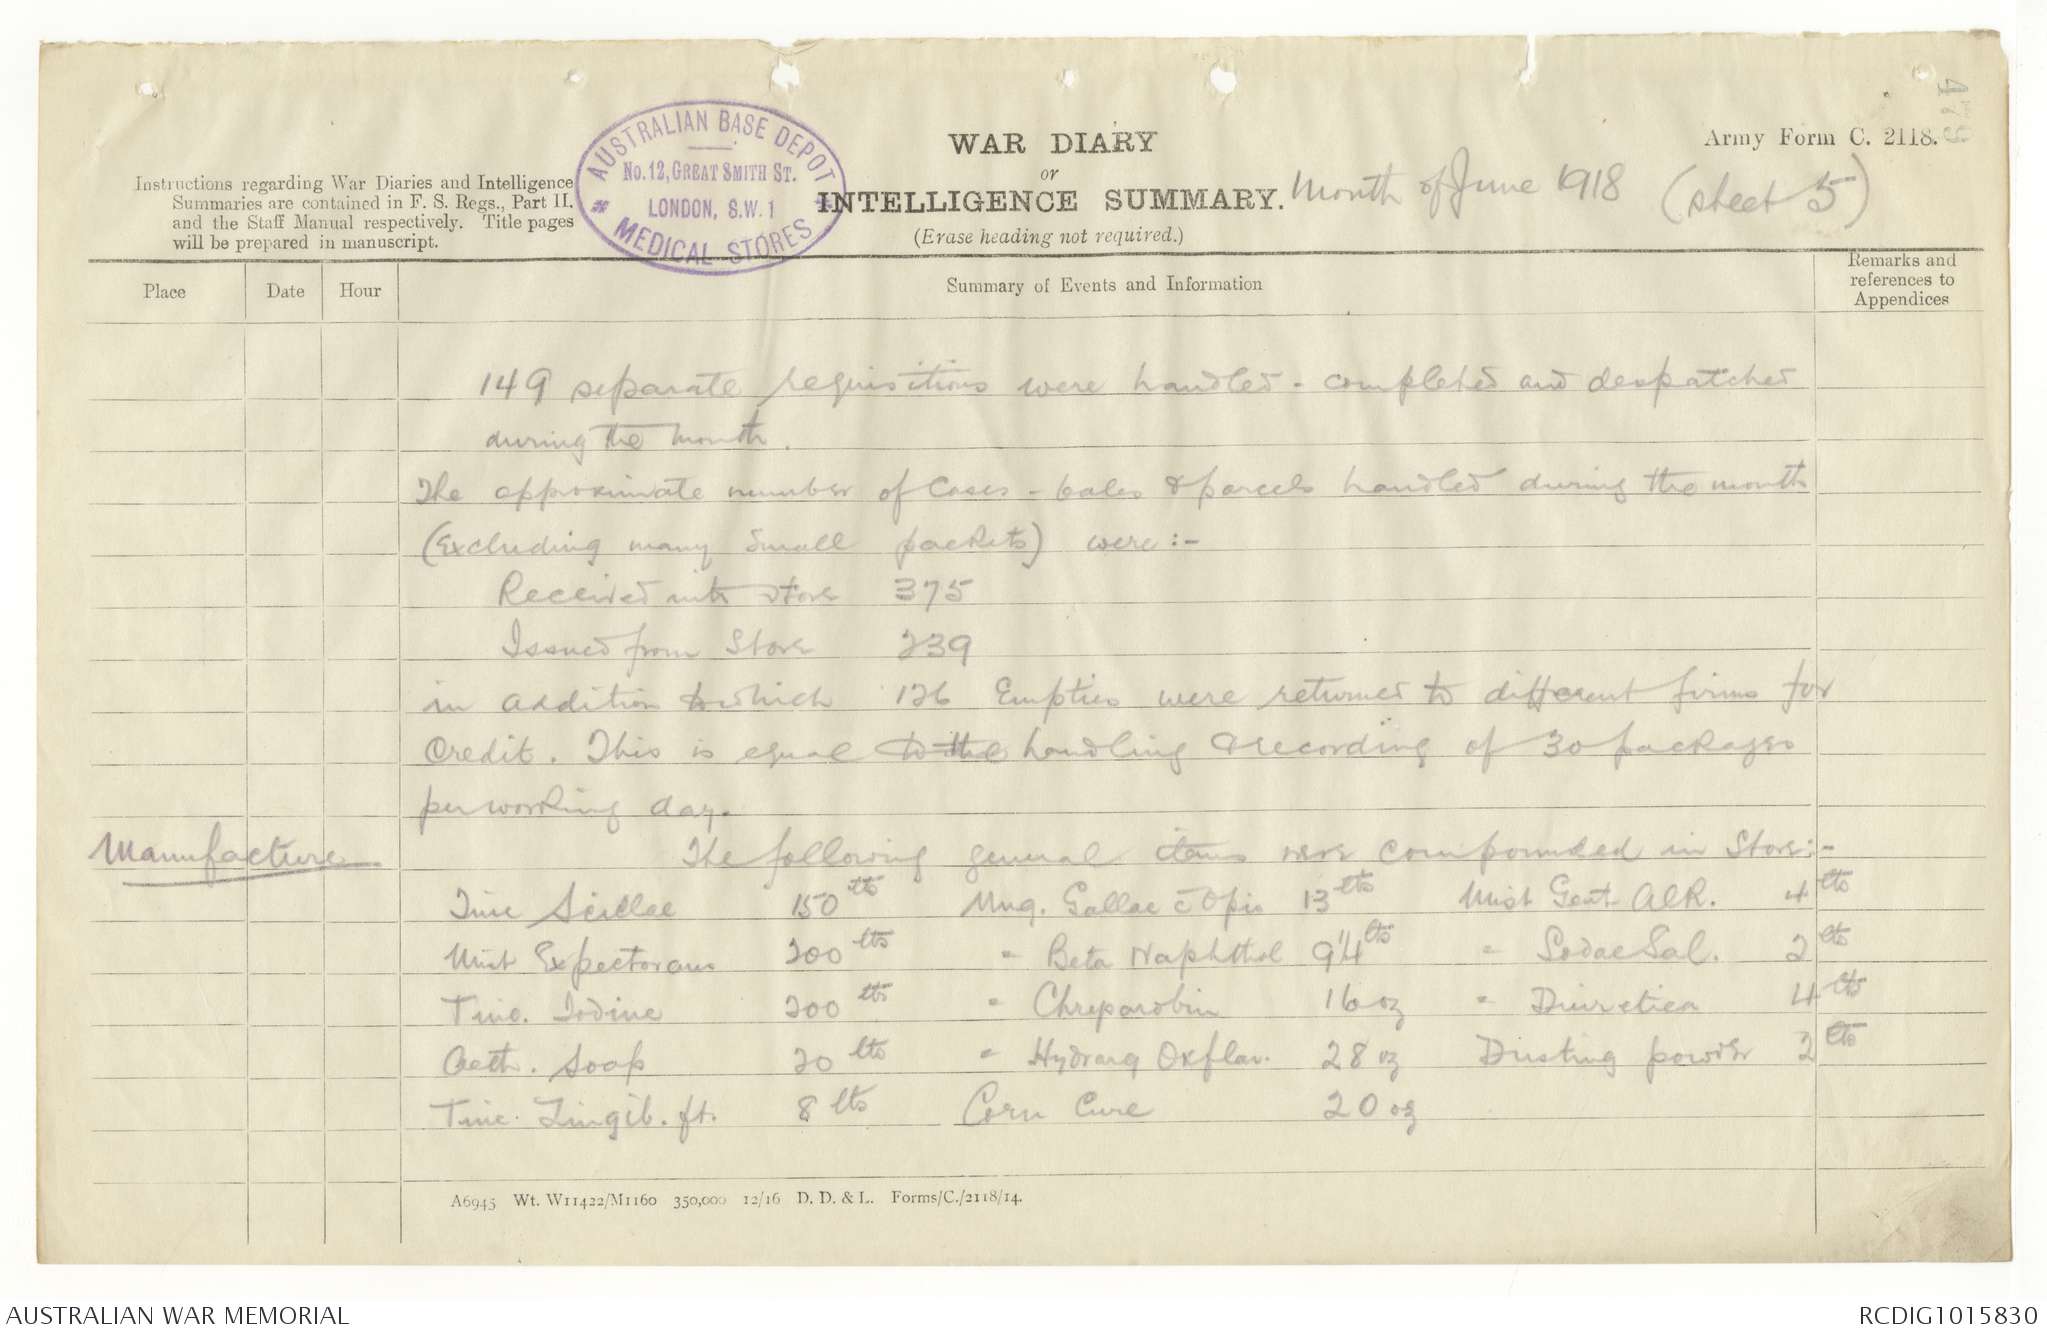 479
Army Form C. 2118.
WAR DIARY
or
INTELLIGENCE SUMMARY.
(Erase heading not required.)
Month of June 1918 (sheet 5)
Instructions regarding War Diaries and Intelligence
Summaries are contained in F. S. Regs., Part II.
and the Staff Manual respectively. Title pages
will be prepared in manuscript.
AUSTRALIAN BASE DEPOT
No. 12, GREAT SMITH ST.
LONDON, S.W.1
* MEDICAL STORES *
Place Date Hour Summary of Events and Information Remarks and
references to
Appendices
149 separate requisitions were handled - completed and despatched
during the month.
The approximate number of Cases - bales & parcels handled during the month
(Excluding many small packets) were :-
Received into store 375
Issued from Store 239
in addition to which 126 Empties were returned to different firms for
Credit. This is equal to the handling & recording of 30 packages
per working day.
Manufacture The following general items were compounded in Store :-
Tinc Scillae 150 lbs Ung. Gallae c Opio 13 lbs Mist Gent Alk. 4 lbs
Mist Expectorans 200 lbs " Beta Naphthol 9 1/4 lbs " Sodae Sal. 2 lbs
Tinc. Iodine 200 lbs " Chrysarobin 16 oz " Diuretica 4 lbs
Aeth. Soap 20 lbs " Hydrarg Oxflav. 28 oz Dusting powder 2 lbs
Tinc. Zingib. ft. 8 lbs Corn Cure 20 oz
A6945 Wt. W11422/M1160 350,000 12/16 D. D. & L. Forms/C./2118/14.
AUSTRALIAN WAR MEMORIAL
RCDIG1015830